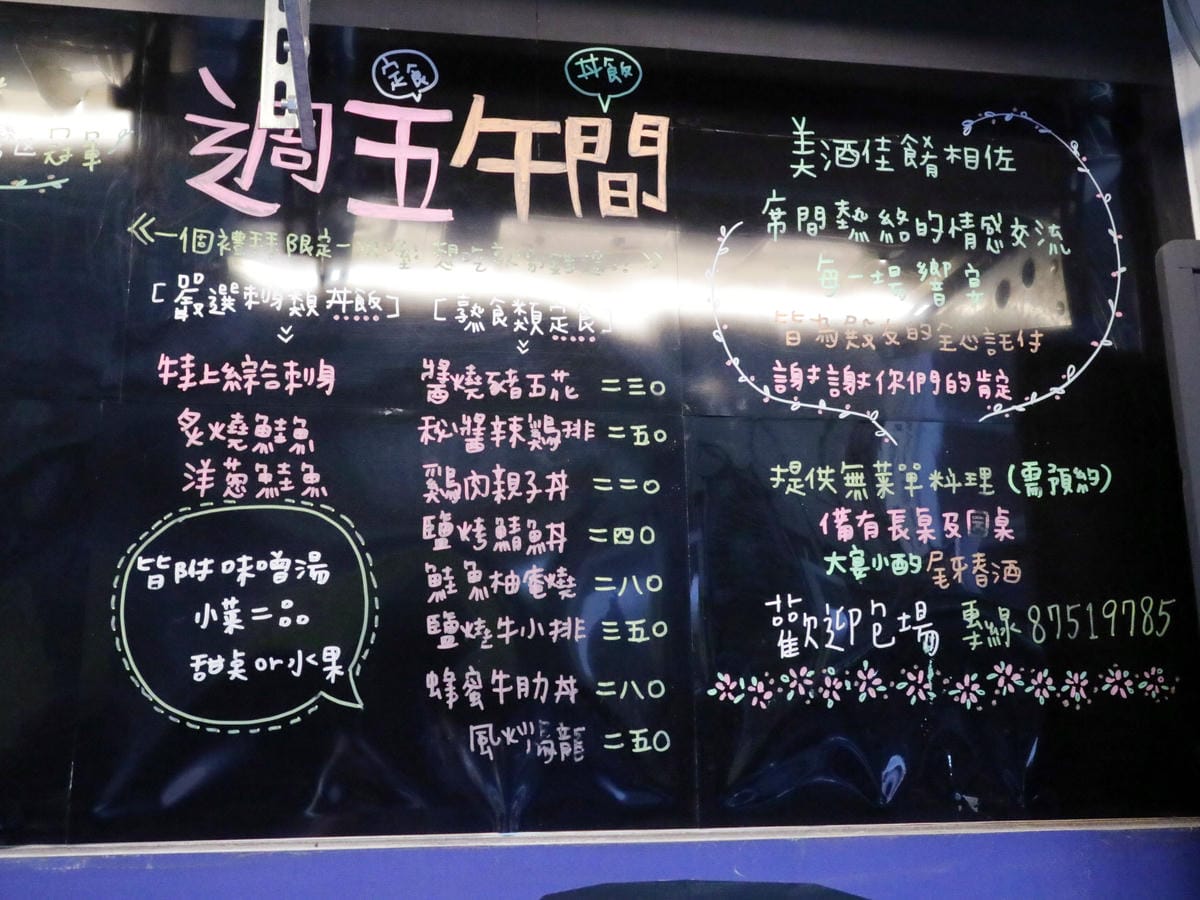 冠軍
定食
丼飯
週五午間
一個禮拜限定一
想吃就
[嚴選刺身類丼飯]
特上綜合刺身
炙燒鮭魚
洋蔥鮭魚
皆附味噌湯
小菜二品
甜桌or水果
[熟食類定食]
醬燒豬五花 二三〇
秘醬辣鷄排 二五〇
鷄肉親子丼 二二〇
鹽烤鯖魚丼 二四〇
鮭魚柚庵燒 二八〇
鹽燒牛小排 三五〇
蜂蜜牛肋丼 二八〇
風 龍 二五〇
美酒佳餚相佐
席間熱絡的情感交流
每一場饗宴
皆為 友的全 託付
謝謝你們的肯定
提供無菜單料理(需預約)
備有長桌及圓桌
大宴小酌 尾牙春酒
歡迎包場 專線87519785